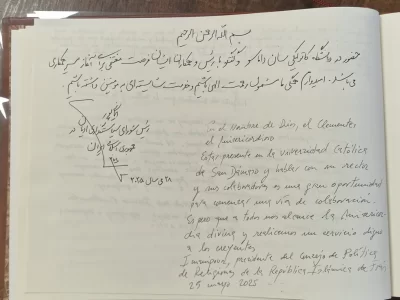 بسم الله الرحمن الرحیم
حضور در دانشگاه کاتولیکی سان داماسو و گفتگو با رئیس و همکاران ایشان فرصت مغتنمی برای آغاز مسیر همکاری
می باشد. امیدوارم همگی ما مشمول رحمت الهی باشیم و خدمت شایسته ای به مومنین داشته باشیم.
رئیس شورای سیاستگذاری ادیان
جمهوری اسلامی ایران
۲۸ می سال ۲۰۲۵
En el Nombre de Dios, el Clemente,
el Misericordioso
Estar presente en la Universidad Católica
de San Dámaso y hablar con su rector
y sus colaboradores es una gran oportunidad
para comenzar una vía de colaboración.
Espero que a todos nos alcance la Misericordia
divina y realicemos un servicio digno
a los creyentes
Imanipour, presidente del Consejo de Política
de Religiones de la República Islámica de Irán
25 mayo 2025